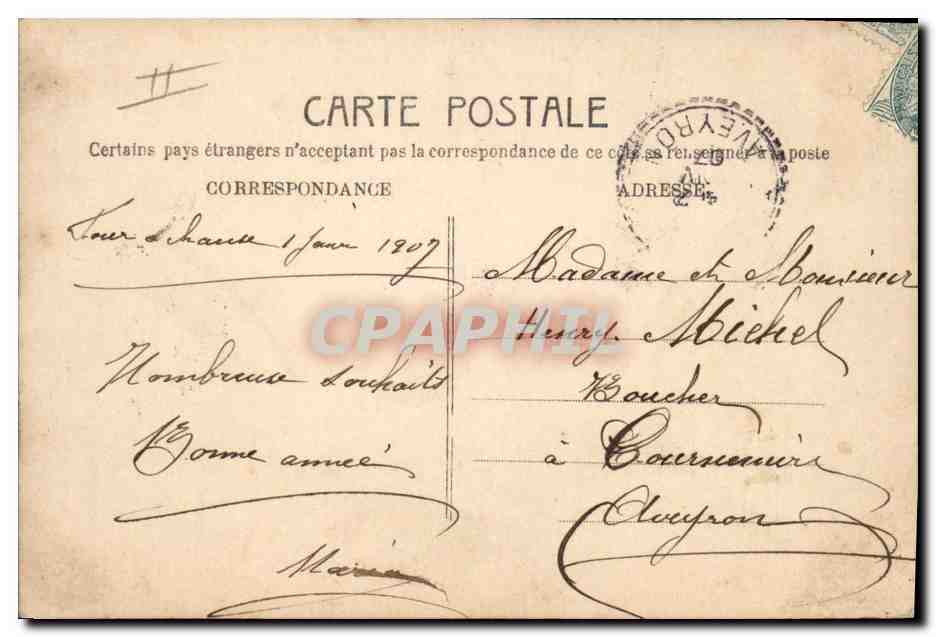 CARTE POSTALE
Certains pays étrangers n'acceptant pas la correspondance de ce côté se renseigner à la poste
CORRESPONDANCE
ADRESSE
AVEYRON
07
1 Janv 1907
Nombreuse souhaits
Bonne année
Maria
Madame et Monsieur
Henry Michel
Boucher
à Tournemire
Aveyron
CPAPHIL